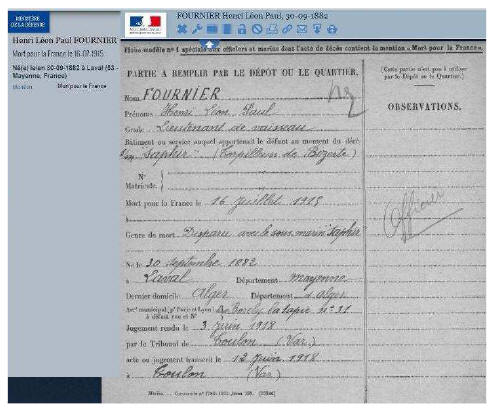 MINISTÈRE
DE LA DÉFENSE
Henri Léon Paul FOURNIER
Mort pour la France le 16-07-1915
Né(e) le/en 30-09-1882 à Laval (53 -
Mayenne, France)
Mention Mort pour la France
FOURNIER Henri Léon Paul, 30-09-1882
Fiche modèle n° 1 spéciale aux officiers et marins dont l'acte de décès contient la mention « Mort pour la France».
PARTIE A REMPLIR PAR LE DÉPOT OU LE QUARTIER.
(Cette partie n'est pas à utiliser
par le Dépôt ou le Quartier.)
OBSERVATIONS.
Nom FOURNIER
Prénoms Henri Léon Paul
Grade Lieutenant de vaisseau
Bâtiment ou service auquel appartenait le défunt au moment du décès
"Saphir" (Torpilleurs de Bizerte)
N°
Matricule.
Mort pour la France le 16 juillet 1915
Officier
Genre de mort Disparu avec le sous marin "Saphir"
Né le 30 septembre 1882
à Laval Département Mayenne
Dernier domicile Alger Département d'Alger
Arrt municipal (pr Paris et Lyon)
à défaut rue et N° n° 31
Jugement rendu le 3 juin 1918
par le Tribunal de Toulon (Var)
acte ou jugement transcrit le 12 juin 1918
à Toulon (Var)